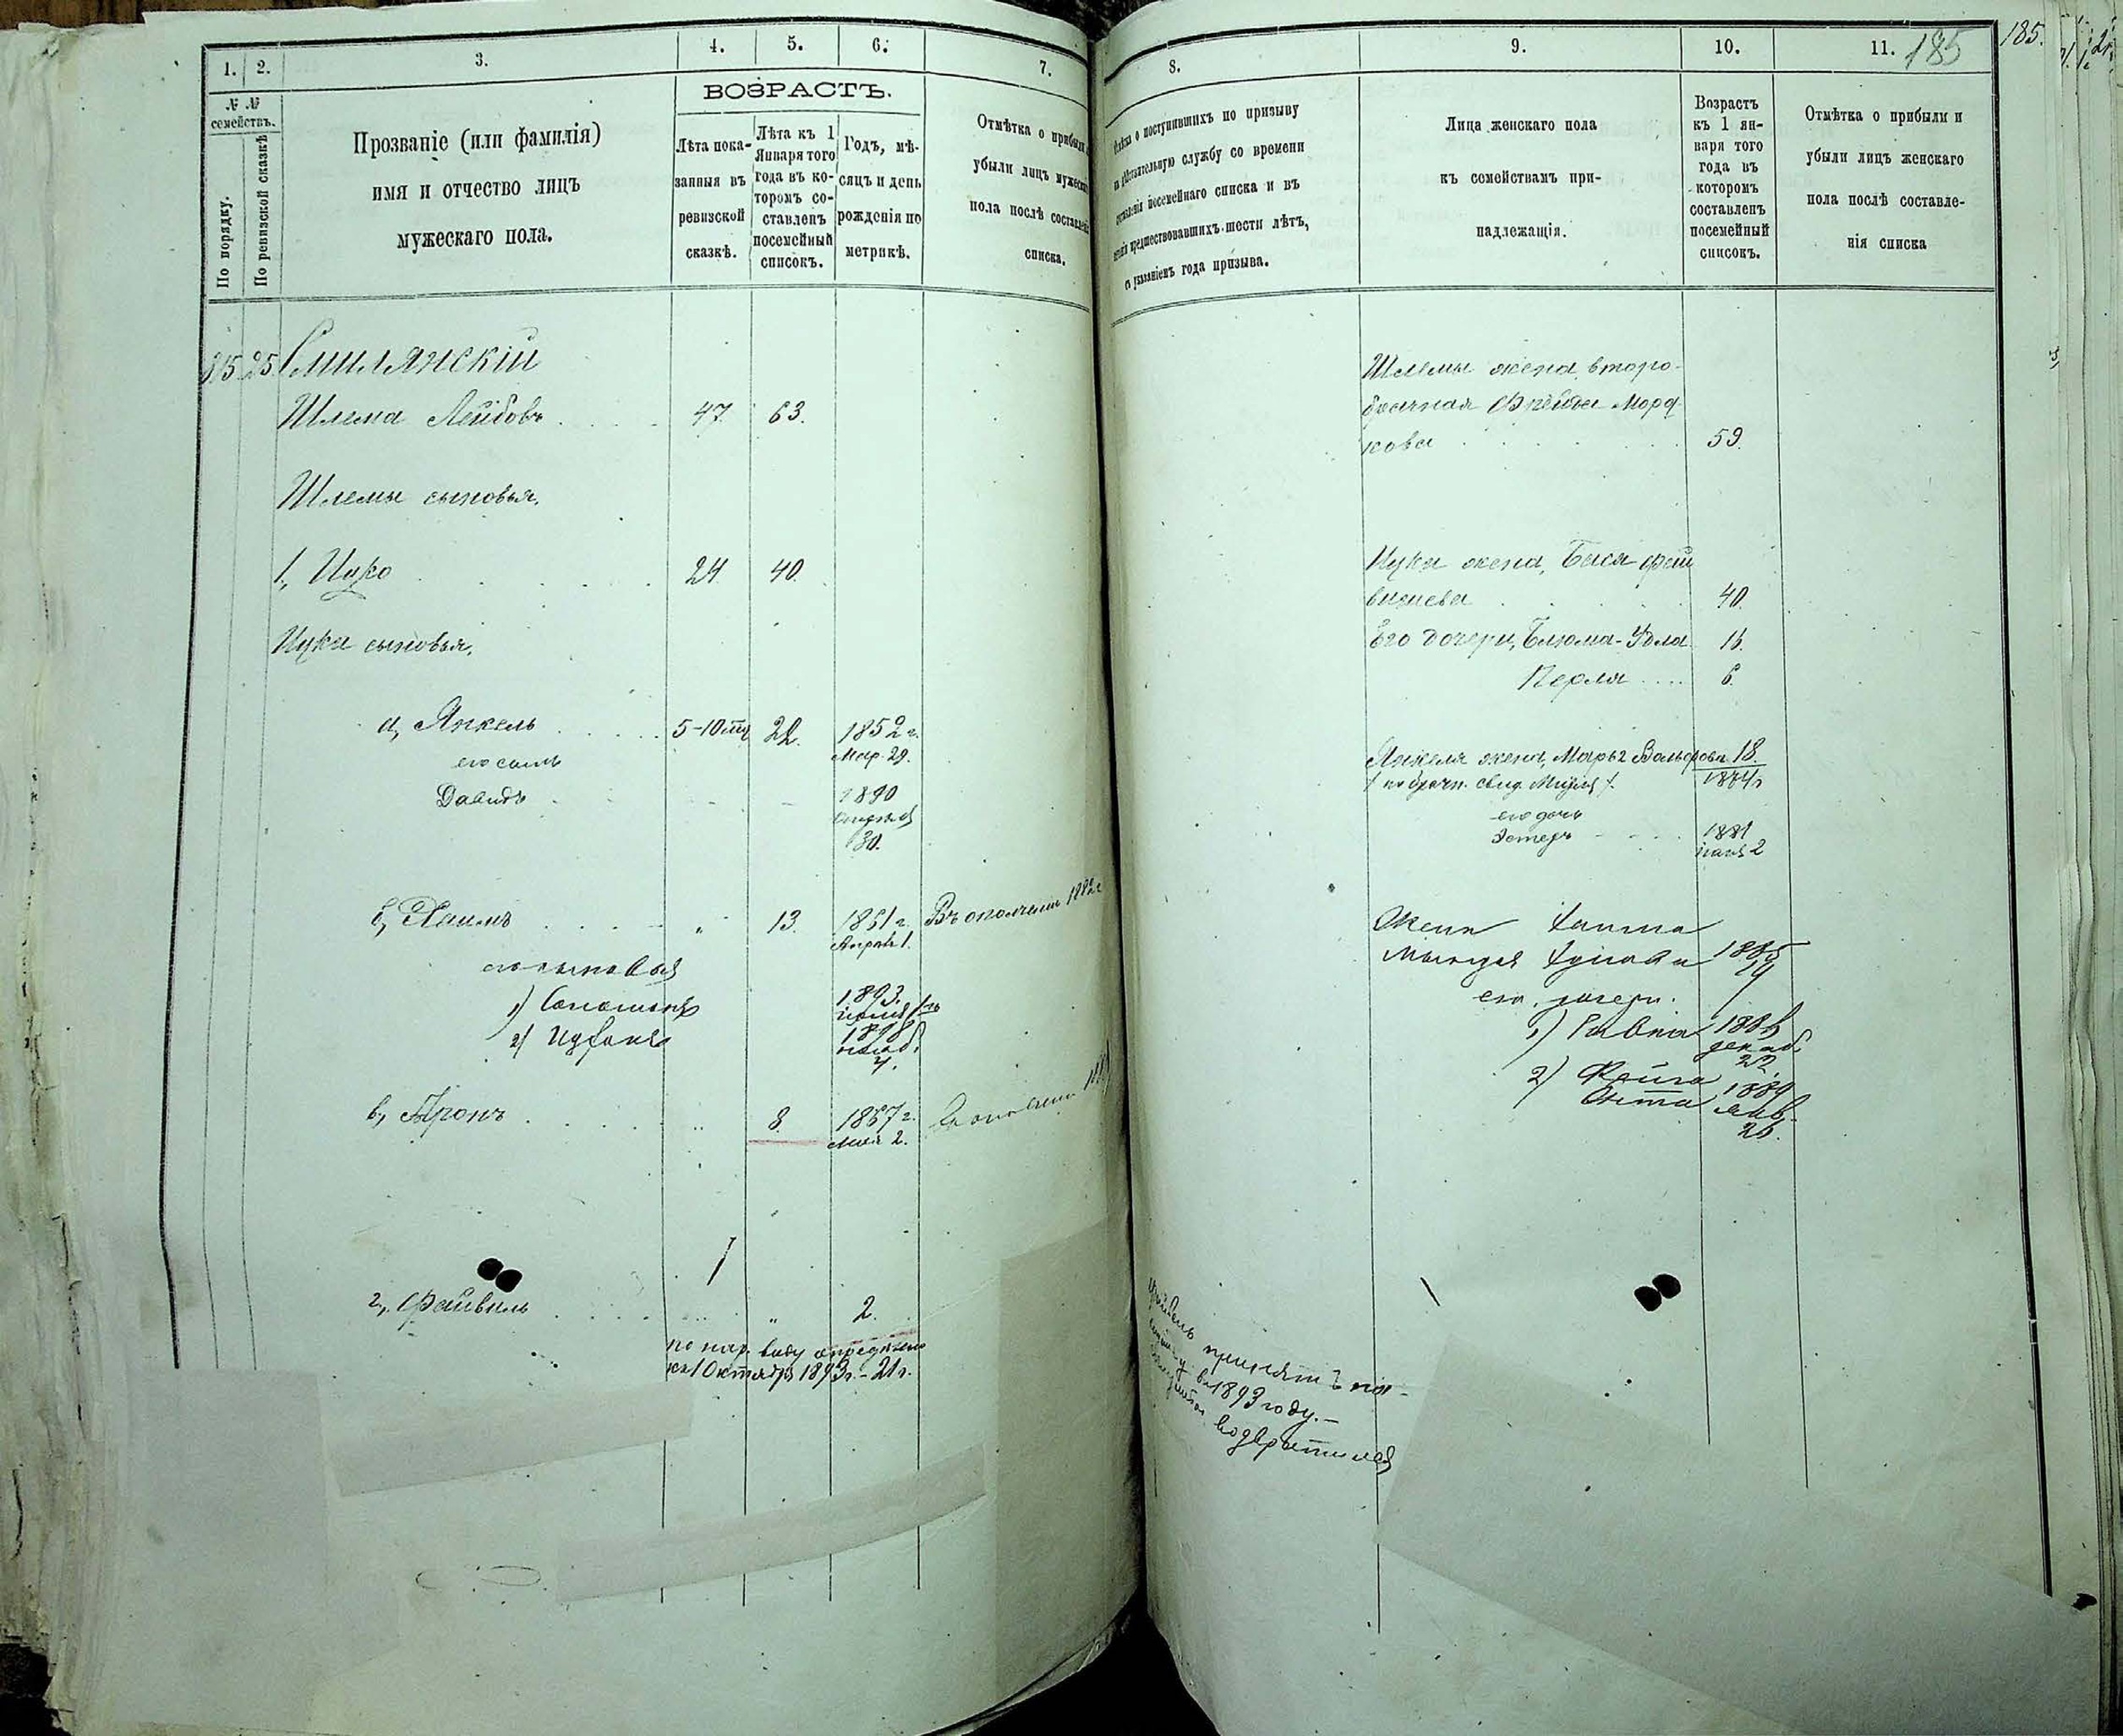 1. 2. 3. 4. 5. 6. 7.
№ № семействъ.
По порядку.
По ревизской сказкѣ
Прозваніе (или фамилія)
имя и отчество лицъ
мужескаго пола.
ВОЗРАСТЪ.
Лѣта пока-
занныя въ
ревизской
сказкѣ.
Лѣта къ 1
Января того
года въ ко-
торомъ со-
ставленъ
посемейный
списокъ.
Годъ, мѣ-
сяцъ и день
рожденія по
метрикѣ.
Отмѣтка о прибыли
убыли лицъ мужеска
пола послѣ составлені
списка.
315 25 Смилянскій
Шлема Лейбовъ 47. 63.
Шлемы сыновья,
1, Ицко 24. 40.
Ицка сыновья,
а, Янкель 5-10 22. 1852 г.
Мар. 29.
его сынъ
Давидъ 1890
30.
б, Хаимъ " 13. 1861 г. Въ ополченіи 1882 г
Апрѣл 1.
его сыновья
1) Соломонъ 1893.
2) 1898
4.
в, Аронъ " 8. 1867 г.
Мая 2.
г, Файвель " 2.
по нар. виду опредѣлено
къ 1 Октября 1893 г. - 21 г.
8. 9. 10. 11. 185
185.
о поступившихъ по призыву
дѣйствительную службу со времени
посемейнаго списка и въ
предшествовавшихъ шести лѣтъ,
съ указаніемъ года призыва.
Лица женскаго пола
къ семействамъ при-
надлежащія.
Возрастъ
къ 1 ян-
варя того
года въ
которомъ
составленъ
посемейный
списокъ.
Отмѣтка о прибыли и
убыли лицъ женскаго
пола послѣ составле-
нія списка
Шлемы жена второ-
брачная Фрейда Морд
кова 59.
Ицка жена, Бася Фай
вишева 40.
Его дочери, Блюма-Удля 16.
Перля 6.
Янкеля жена, Марья Вольфова 18.
/ по брачн. свид. / 1874 г
его дочь
Эстеръ 1881
2
Жена Хаима
1885
его дочери.
1) Ривка 1886
декаб.
22.
2) Фейга 1889
янв.
26.
Файвель принятъ
въ 1893 году. -
возвратился